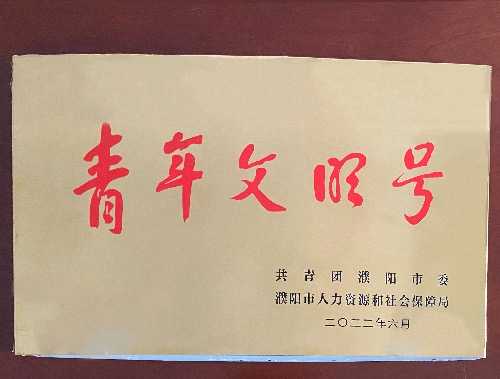 青年文明号
共青团濮阳市委
濮阳市人力资源和社会保障局
二〇二二年六月